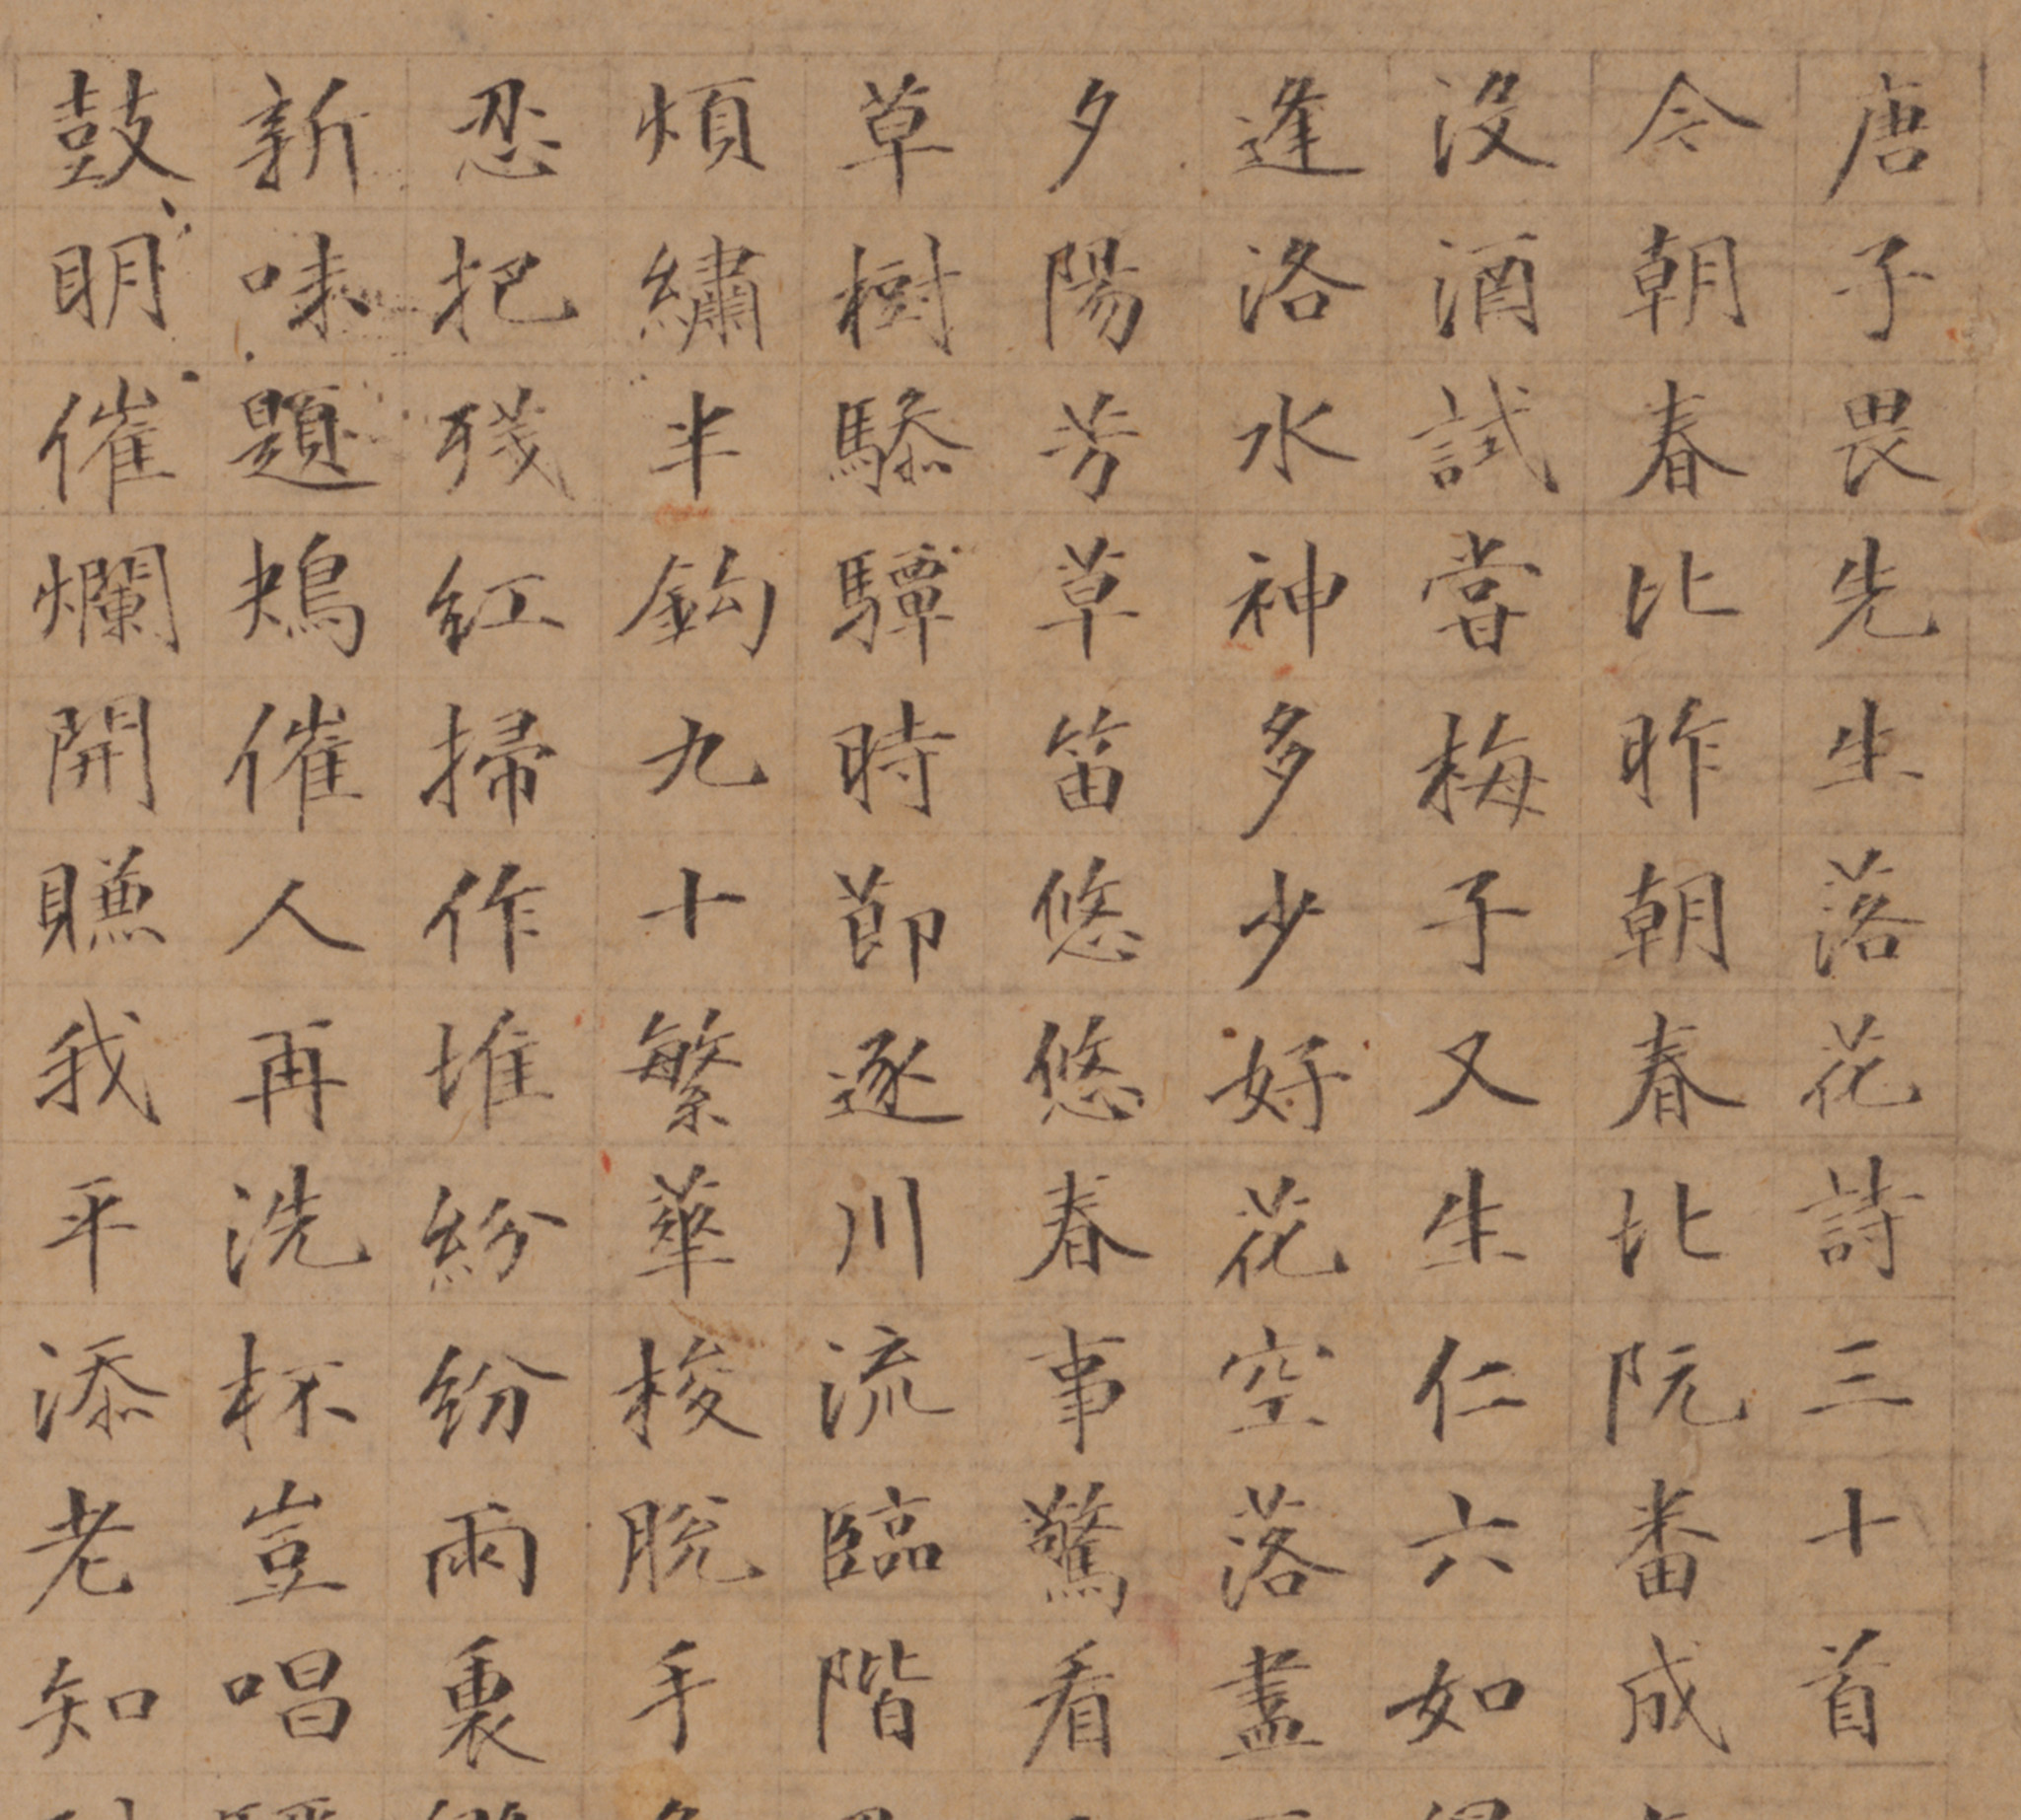 唐子畏先生落花詩三十首
今朝春比昨朝春北阮番成
沒酒試嘗梅子又生仁六如
逢洛水神多少好花空落盡
夕陽芳草笛悠悠春事驚看
草樹驂驔時節逐川流臨階
煩繡半鈎九十繁華梭脫手
忍把殘紅掃作堆紛紛雨裏
新味題鴂催人再洗杯豈唱
鼓明催爛開賺我平添老知